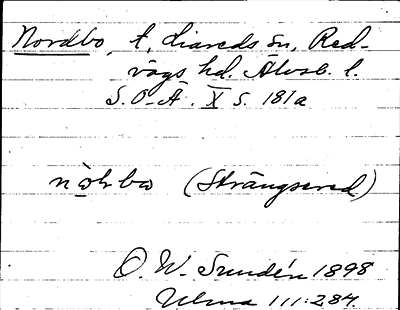 Nordbo, t, Liareds sn, Red-
vägs hd. Älvsb. l.
S.O.Ä. X s. 181a
(Strängsered)
O. W. Sundén 1898
Ulma 111:284.